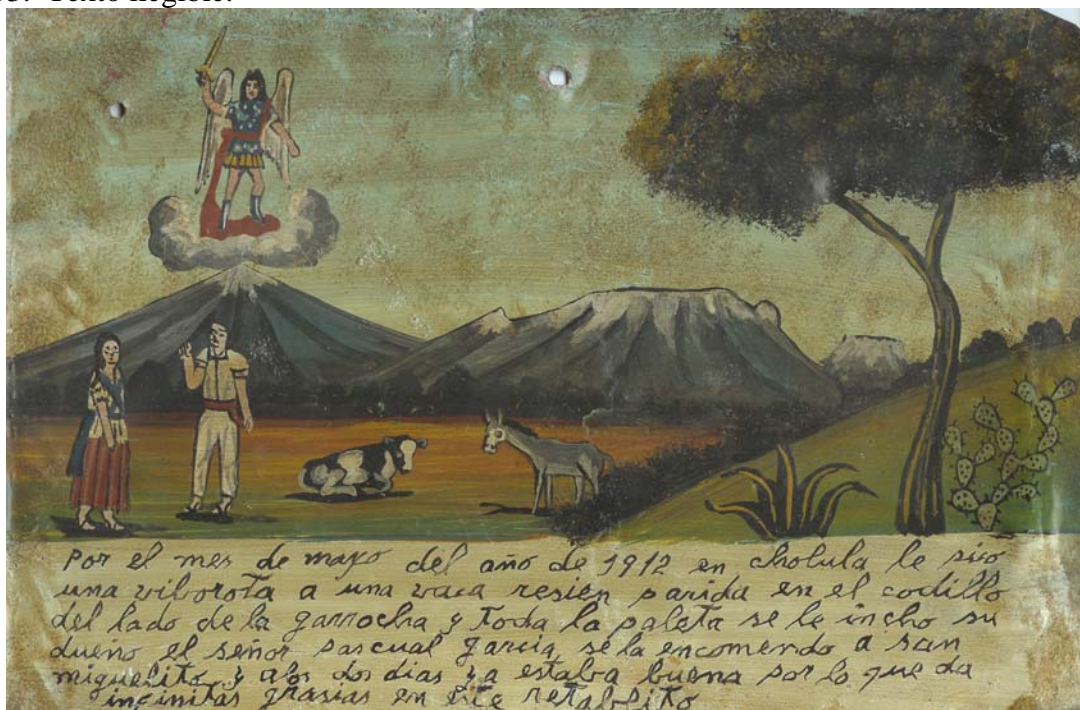 Texto ilegible.
Por el mes de mayo del año de 1912 en cholula le pico
una viborota a una vaca resien parida en el codillo
del lado de la garrocha y toda la paleta se le incho su
dueño el señor pascual garcia, se la encomendo a san
miguelito y alos dos dias ya estaba buena por lo que da
infinitas grasias en este retablito